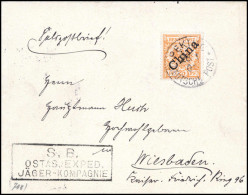 Feldpostbrief!
China
Herrn
Hauptmann
Hochwohlgeboren
Wiesbaden.
Kaiser-Friedrich-Ring 96
S. B.
OSTAS. EXPED.
JÄGER-KOMPAGNIE